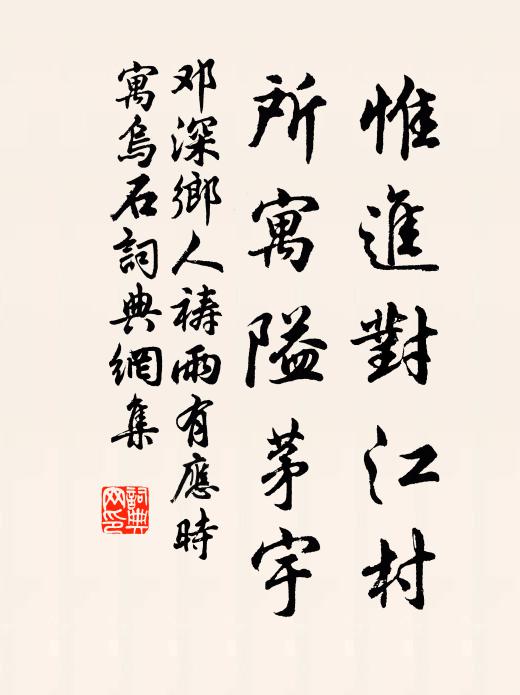 惟進對江村
所寓隘茅宇
邓深鄉人禱雨有應時
寓烏石詞典網集
詞典
网印